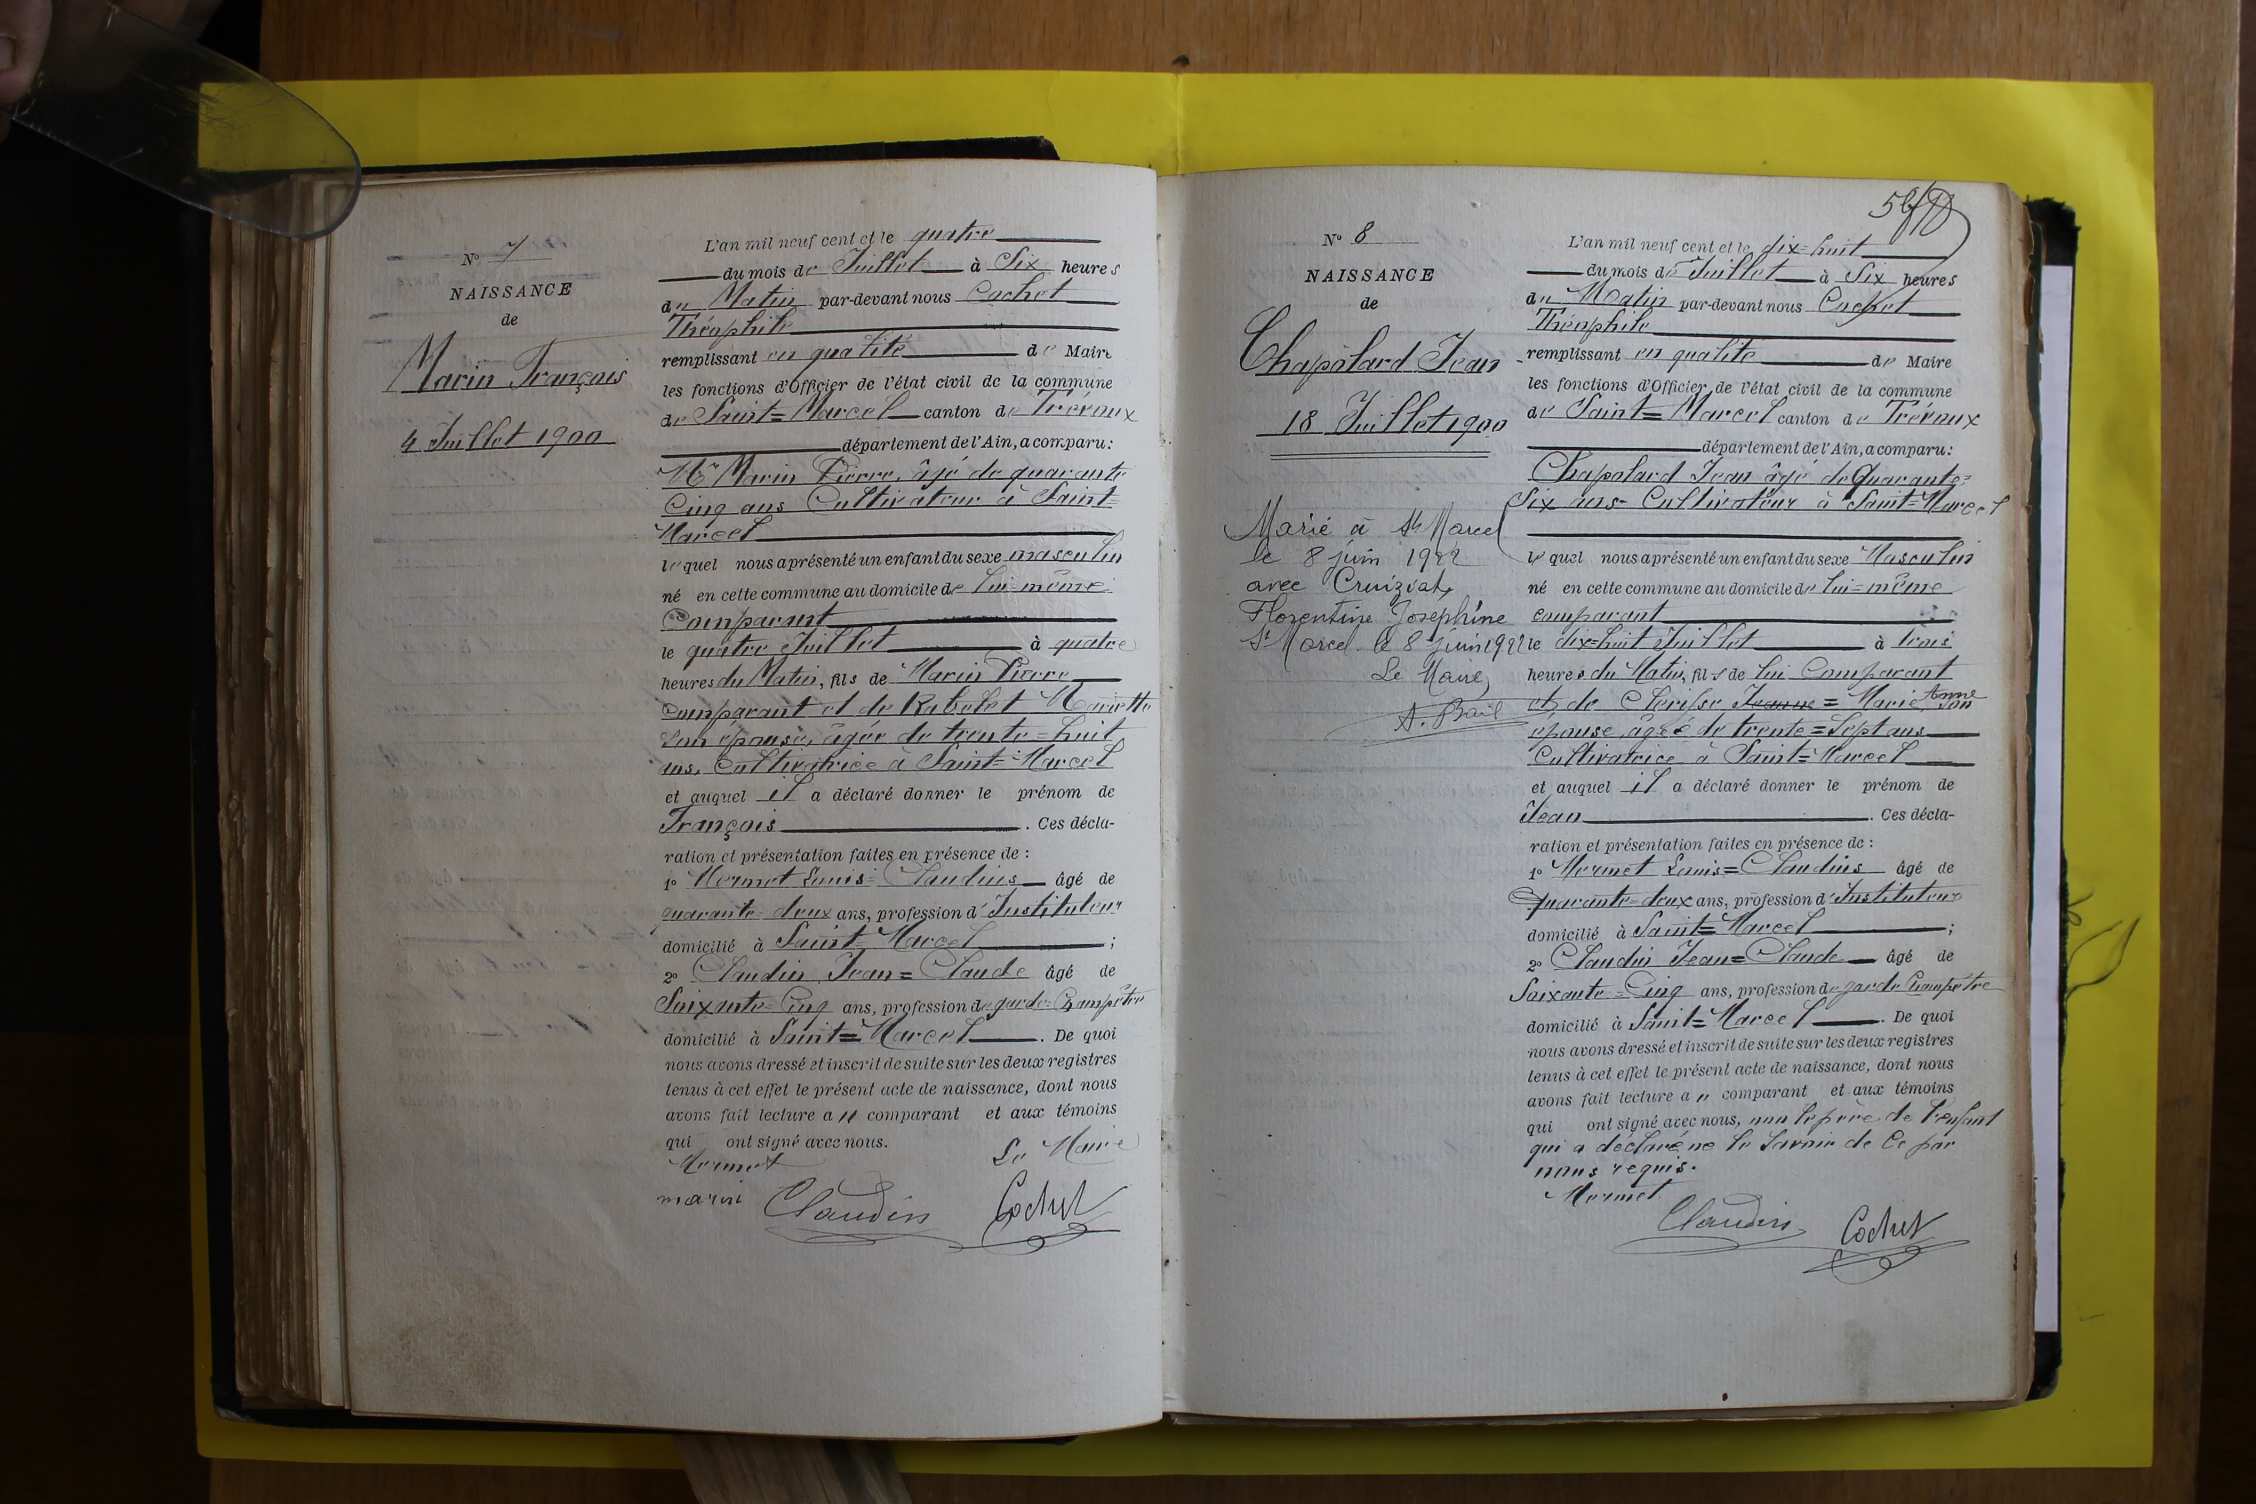 N° 7
NAISSANCE
de
Marin François
4 Juillet 1900
L'an mil neuf cent et le quatre
du mois de Juillet à Six heures
du Matin par-devant nous Cochet
Théophile
remplissant en qualité de Maire
les fonctions d'Officier de l'état civil de la commune
de Saint=Marcel canton de Trévoux
département de l'Ain, a comparu:
Mr Marin Pierre, âgé de quarante
Cinq ans Cultivateur à Saint=
Marcel
lequel nous a présenté un enfant du sexe masculin
né en cette commune au domicile de lui=même
Comparant
le quatre Juillet à quatre
heures du Matin, fils de Marin Pierre
Comparant et de Rebelet Mariette
son épouse, âgée de trente=huit
ans, Cultivatrice à Saint=Marcel
et auquel il a déclaré donner le prénom de
François. Ces décla-
ration et présentation faites en présence de:
1° Mermet Louis=Claudius âgé de
quarante=deux ans, profession d'Instituteur
domicilié à Saint=Marcel;
2° Claudin Jean=Claude âgé de
Soixante=Cinq ans, profession de garde=Champêtre
domicilié à Saint=Marcel. De quoi
nous avons dressé et inscrit de suite sur les deux registres
tenus à cet effet le présent acte de naissance, dont nous
avons fait lecture au comparant et aux témoins
qui ont signé avec nous.
Le Maire
Mermet
marin Claudin Cochet
56
N° 8
NAISSANCE
de
Chapolard Jean
18 Juillet 1900
Marié à St Marcel
le 8 juin 1922
avec Cruiziat
Florentine Joséphine
St Marcel le 8 juin 1922
Le Maire,
A. Brail
L'an mil neuf cent et le dix=huit
du mois de Juillet à Six heures
du Matin par-devant nous Cochet
Théophile
remplissant en qualité de Maire
les fonctions d'Officier de l'état civil de la commune
de Saint=Marcel canton de Trévoux
département de l'Ain, a comparu:
Chapolard Jean âgé de Quarante=
Six ans Cultivateur à Saint=Marcel
lequel nous a présenté un enfant du sexe Masculin
né en cette commune au domicile de lui=même
comparant
le dix=huit Juillet à trois
heures du Matin, fils de lui Comparant
et de Clerisse Jeanne=Marie Anne son
épouse, âgée de trente=Sept ans
Cultivatrice à Saint=Marcel
et auquel il a déclaré donner le prénom de
Jean. Ces décla-
ration et présentation faites en présence de:
1° Mermet Louis=Claudius âgé de
Quarante=deux ans, profession d'Instituteur
domicilié à Saint=Marcel;
2° Claudin Jean=Claude âgé de
Soixante=Cinq ans, profession de garde Champêtre
domicilié à Saint=Marcel. De quoi
nous avons dressé et inscrit de suite sur les deux registres
tenus à cet effet le présent acte de naissance, dont nous
avons fait lecture au comparant et aux témoins
qui ont signé avec nous, non le père de l'enfant
qui a déclaré ne le savoir de ce par
nous requis.
Mermet
Claudin Cochet